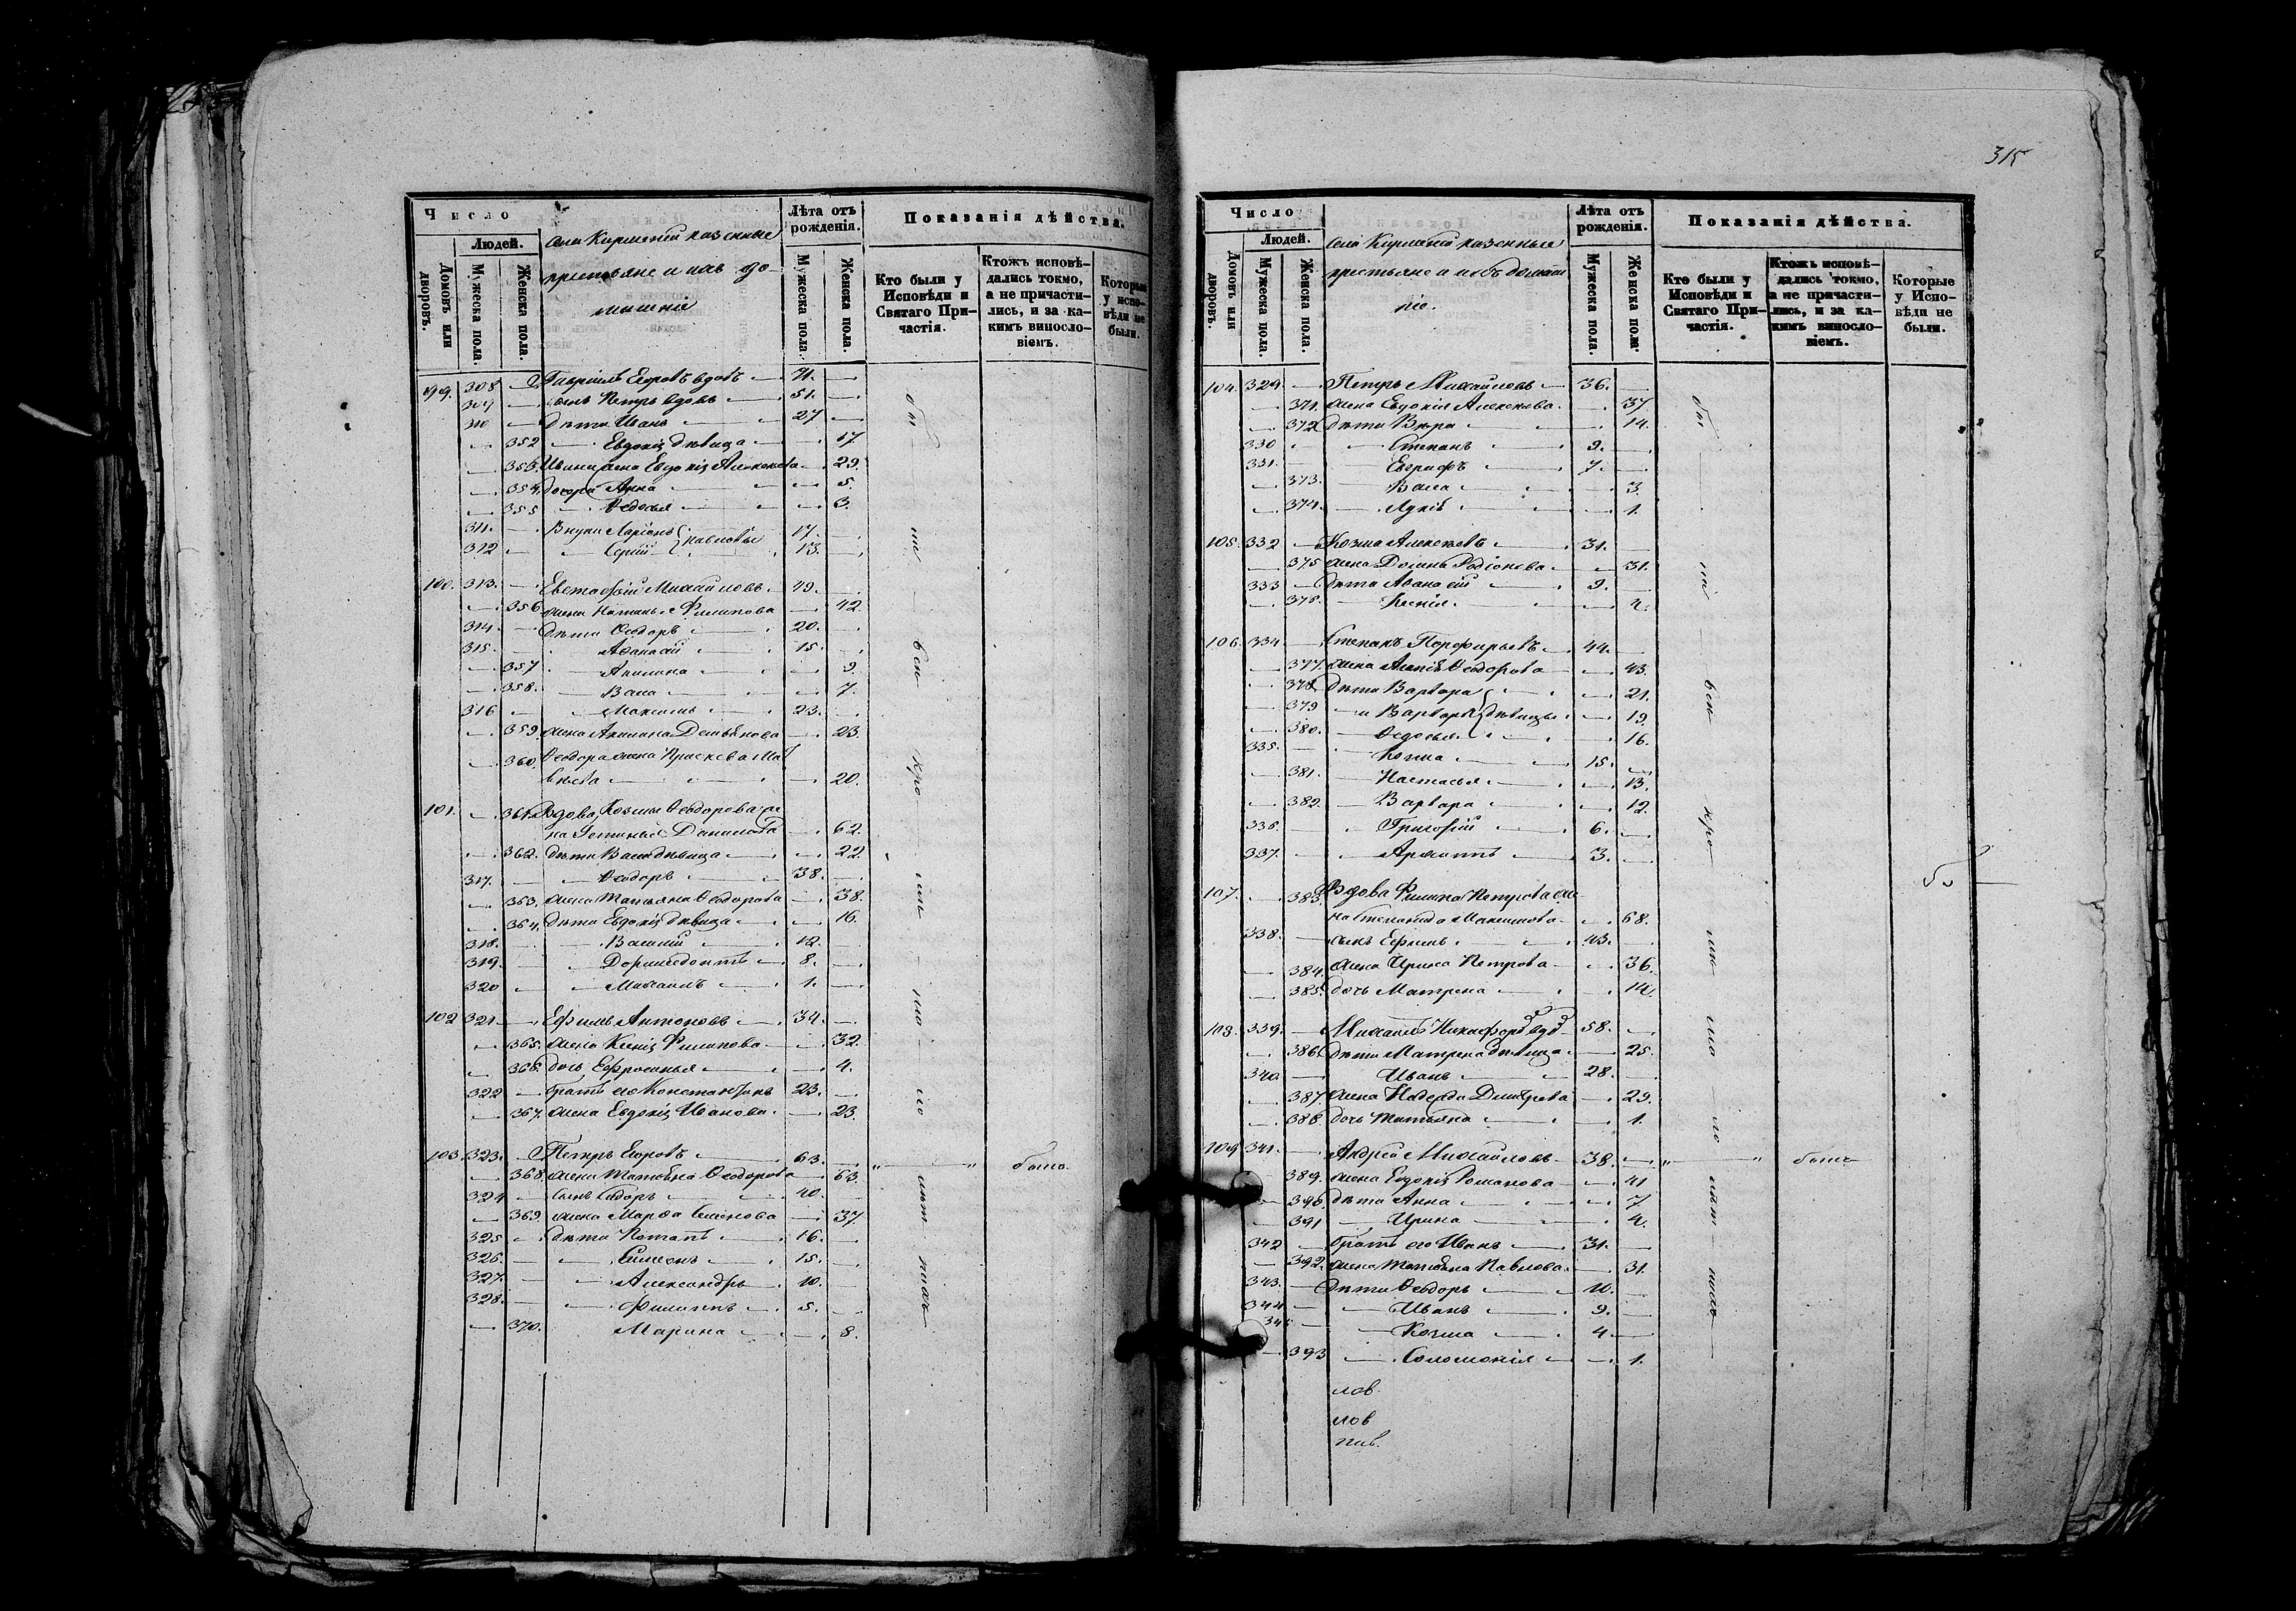 315
Число
Людей.
Домовъ или дворовъ.
Мужеска пола.
Женска пола.
казенные
крестьяне и ихъ до-
машніе
Лѣта отъ рожденія.
Мужеска пола.
Женска пола.
Показанія дѣйства.
Кто были у Исповѣди и Святаго Причастія.
Ктожъ исповѣ-дались токмо, а не причасти-лись, и за ка-кимъ винословіемъ.
Которые у испо-вѣди не были.
99. 308 Гавріилъ Егоровъ вдовъ 71.
309 сынъ Петръ вдовъ 51.
310 дѣти Иванъ 27
352 Евдокія дѣвица 17
353. Ивана жена Евдокія Алексѣева 29.
354. дочери Анна 5.
355 Ѳедосья 3.
311. Внуки Ларіонъ Павловы 17.
312 Сергій 13.
100. 313. Евстафій Михайловъ 49.
356 жена Наталья Филипова 42
314. дѣти Ѳеодоръ 20.
315. Аѳанасій 15.
357 Акилина 9
358. Васа 7.
316 Максимъ 23.
359. жена Акилина Демьянова 23.
360. Ѳеодора жена Праскева Мат
вѣева 20.
101. 361. Вдова Козмы Ѳеодорова же
на Устинья Данилова 62.
362. дѣти Васа дѣвица 22.
317. Ѳеодоръ 38.
363. жена Татьяна Ѳеодорова 38.
364. дѣти Евдокія дѣвица 16.
318. Василій 12.
319. Доримедонтъ 8.
320 Михаилъ 1.
102 321 Ефимъ Антоновъ 34.
365. жена Ксенія Филипова 32.
366. дочь Ефросинья 4.
322 братъ его Константинъ 23.
367. жена Евдокія Иванова 23.
103. 323. Петръ Егоровъ 63.
368. жена Татьяна Ѳеодорова 63.
324 сынъ Сидоръ 40.
369. жена Марѳа Семенова 37.
325 дѣти Потапъ 16.
326. Симеонъ 15.
327. Александръ 10.
328. Филиппъ 5.
370. Марина 8.
Число
Людей.
Домовъ или дворовъ.
Мужеска пола.
Женска пола.
казенные
крестьяне и ихъ домаш
ніе.
Лѣта отъ рожденія.
Мужеска пола.
Женска пола.
Показанія дѣйства.
Кто были у Исповѣди и Святаго При-частія.
Ктожъ исповѣ-дались токмо, а не причасти-лись, и за ка-кимъ винословіемъ.
Которые у Испо-вѣди не были.
104. 329. Петръ Михайловъ 36.
371. жена Евдокія Алексѣева 37
372 дѣти Вѣра 14.
330 Степанъ 9.
331. Евграфъ 7.
373. Васа 3.
374. 1.
105. 332 Козма Алексѣевъ 31.
375 жена Домна Родіонова 31.
333 дѣти Аѳанасій 9.
376. Ксенія 4.
106. 334 Степанъ Порфирьевъ 44.
377. жена Ѳеодорова 43.
378 дѣти Варвара 21.
379 и Варвара дѣвицы 19.
380. Ѳедосья 16.
335. Козма 15.
381. Настасья 13.
382. Варвара 12.
336. Григорій 6.
337. 3.
107. 383. Вдова Филипа Петрова же
на Степанида Максимова 68.
338. сынъ Ефимъ 43.
384. жена Ирина Петрова 36.
385. дочь Матрена 14.
108. 339. Михаилъ Никифоровъ вдовъ 58.
386. дѣти Матрена дѣвица 25.
340 Иванъ 28.
387 жена Надежда Дмитрева 29.
388 дочь Татьяна 1.
109 341. Андрей Михайловъ 38.
389. жена Евдокія Романова 41
390. дѣти Анна 7
391 Ирина 4.
342 братъ его Иванъ 31.
392. жена Татьяна Павлова 31.
343. дѣти Ѳеодоръ 10.
344 Иванъ 9.
345 Козма 4
393 Соломонія 1.
лов.
лов